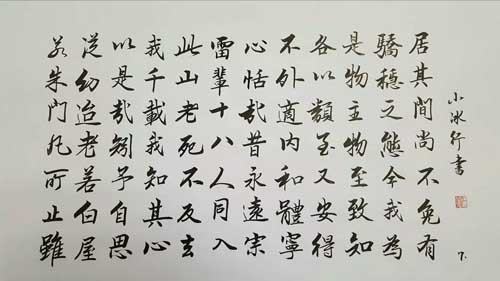 居其間尚不免有
驕穩之態今我為
是物主物至致知
各以類至又安得
不外適内和體寧
心恬哉昔永遠宗
雷輩十八人同入
此山老死不反去
我千載我知其心
以是哉矧予自思
從幼迨老若白屋
若朱門凡所止雖
小冰行書
7.